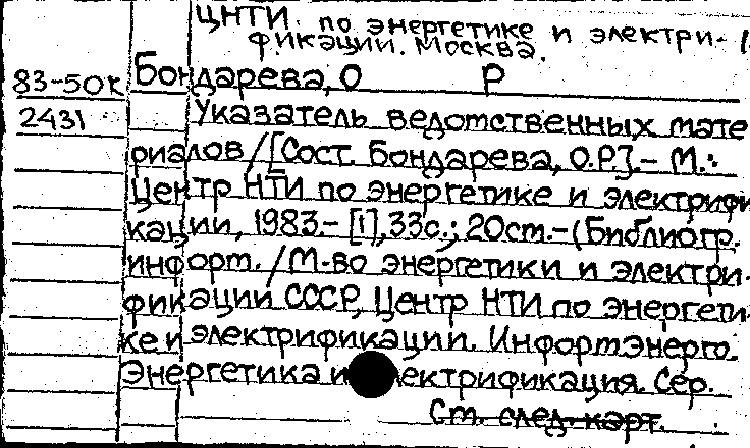 ЦНТИ по энергетике и электри- 1
фикации. Москва.
Бондарева, О Р
83-50к
Указатель ведомственных мате
2431
риалов/[Сост. Бондарева, О.Р.].- М.:
Центр НТИ по энергетике и электрифи
кации, 1983.- [1],33с.; 20см.-(Библиогр.
информ./М-во энергетики и электри-
фикации СССР, Центр НТИ по энергети
ке и электрификации. Информэнерго.
Энергетика и электрификация. Сер.
Ст. след. карт.